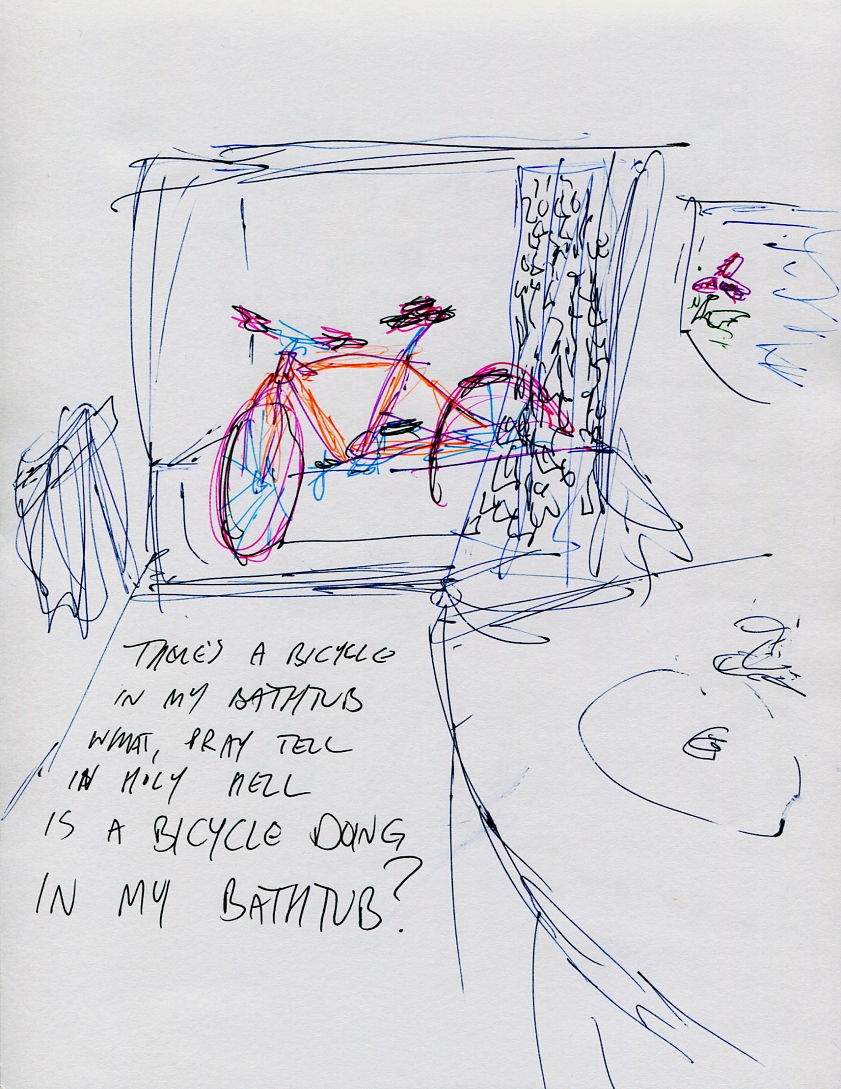 THERE'S A BICYCLE
IN MY BATHTUB
WHAT, PRAY TELL
IN HOLY HELL
IS A BICYCLE DOING
IN MY BATHTUB?